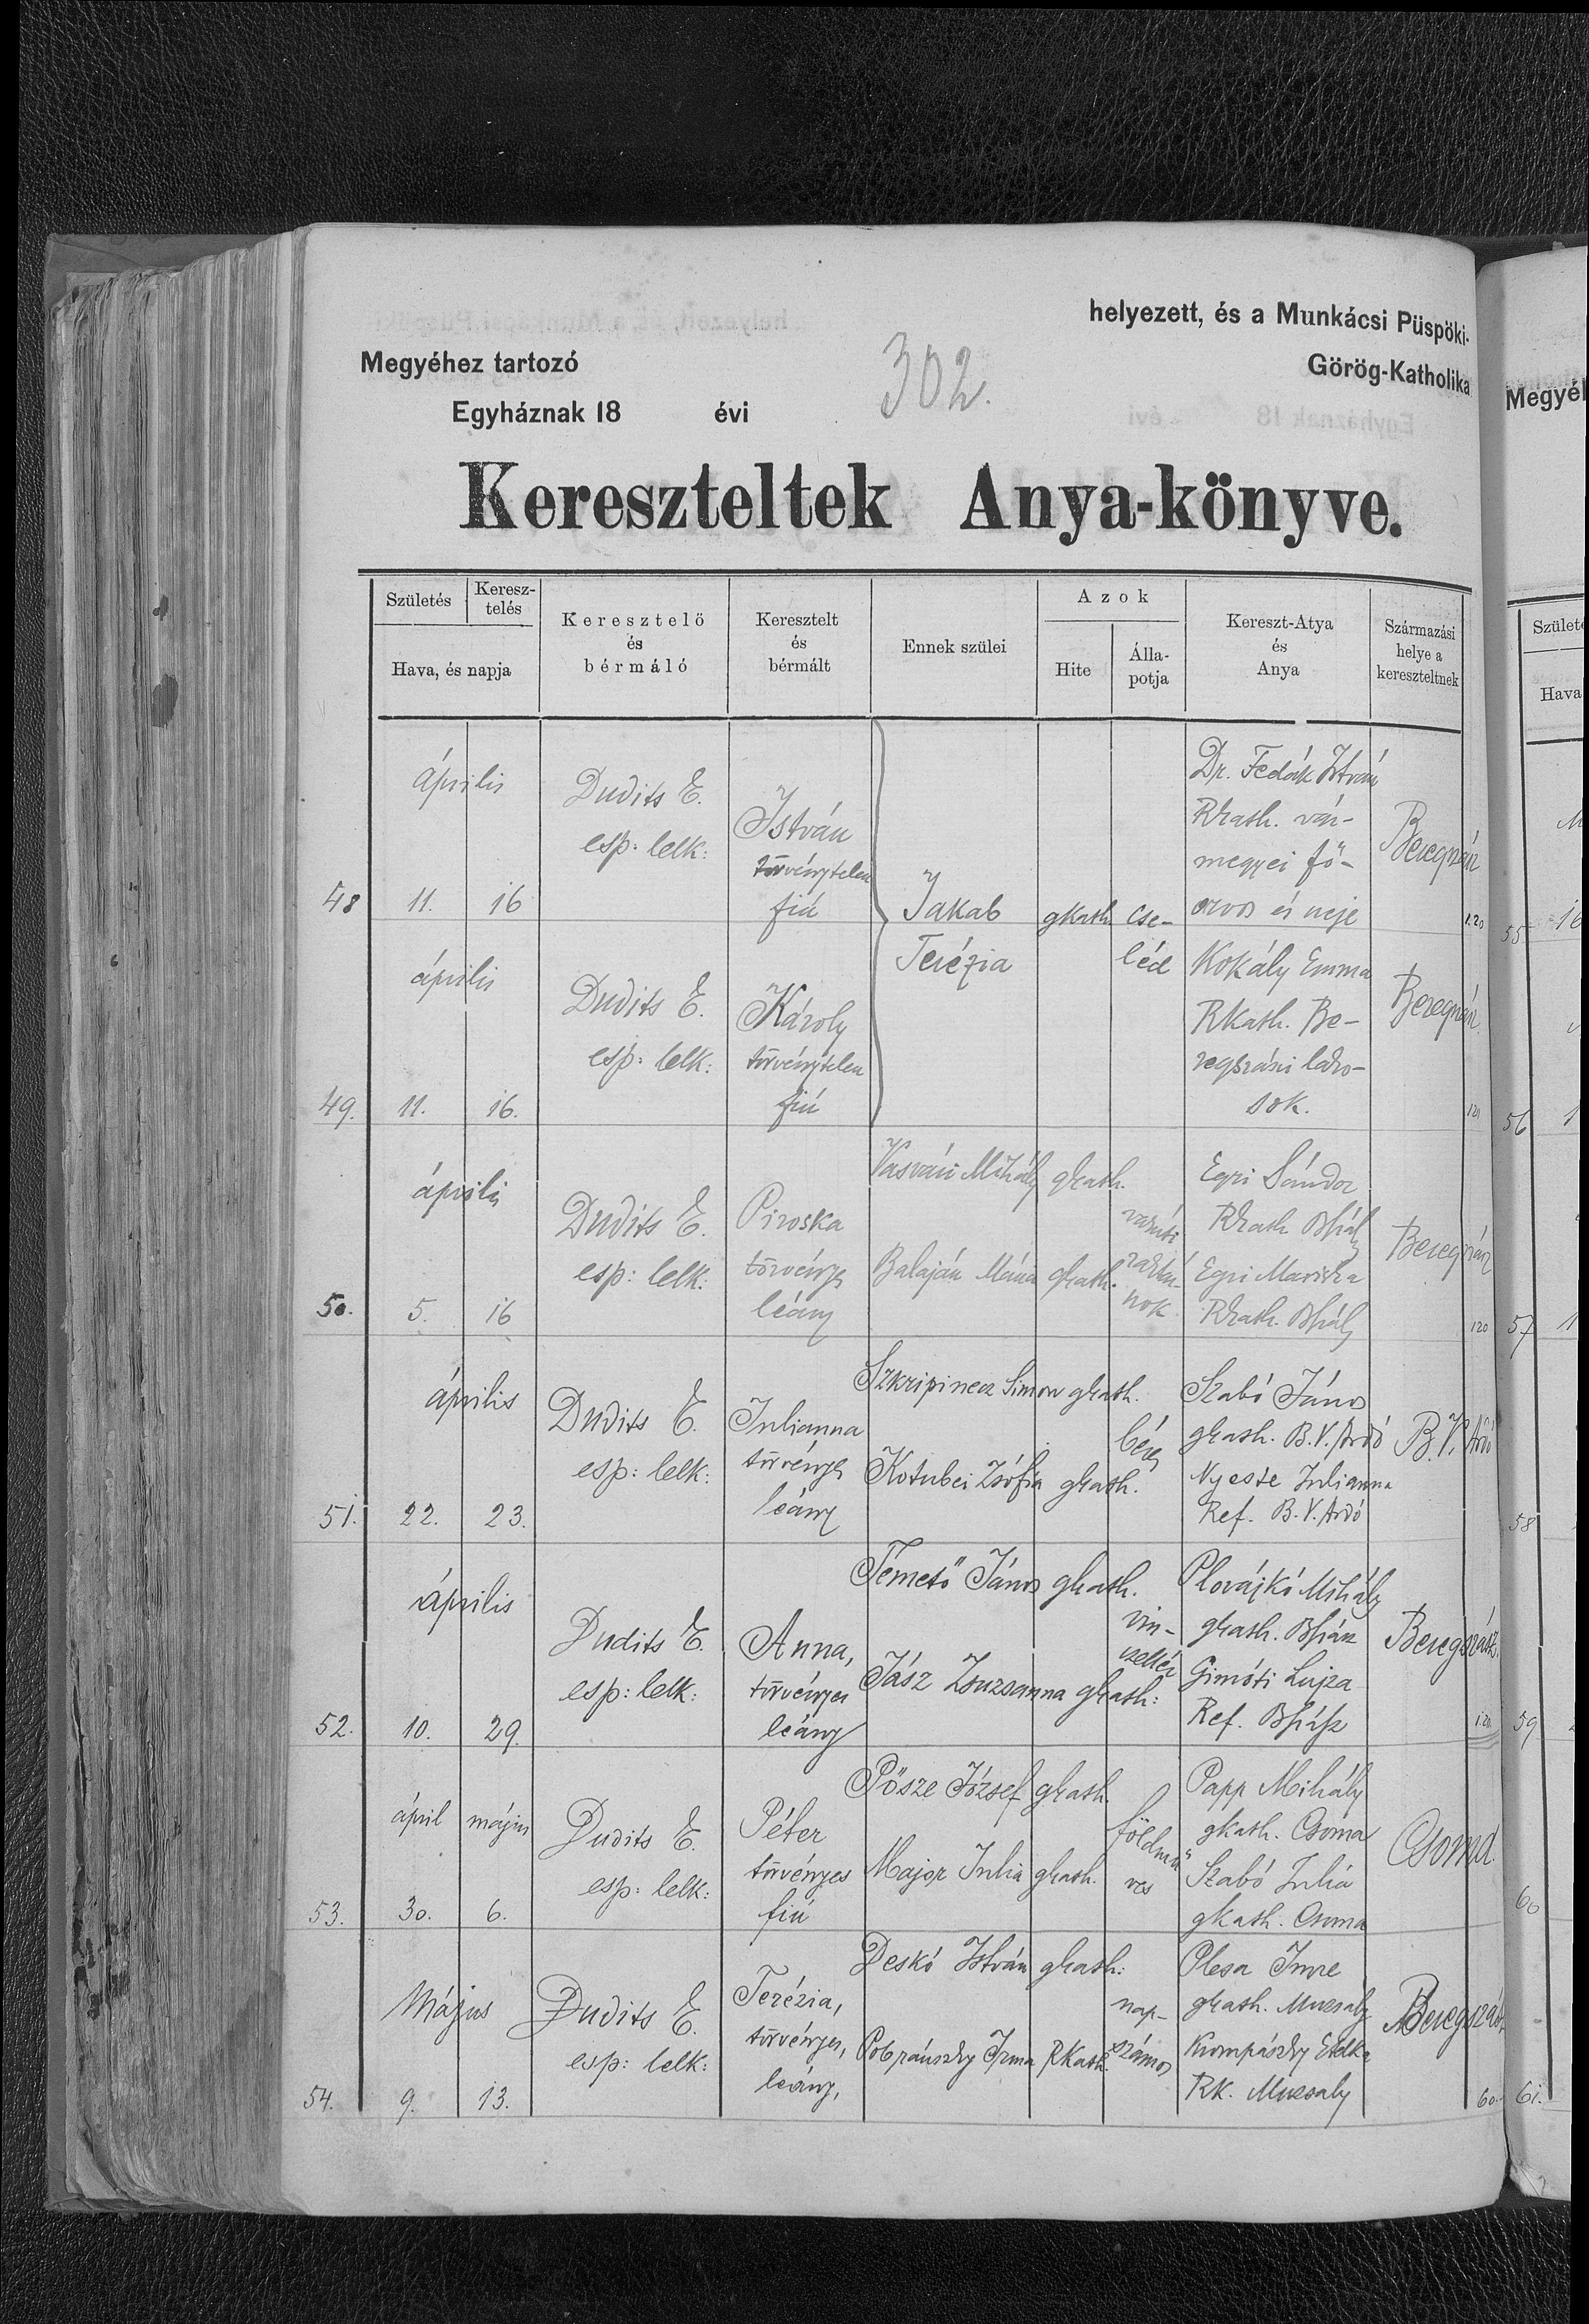 helyezett, és a Munkácsi Püspöki-
Megyéhez tartozó
302.
Görög-Katholika
Egyháznak 18 évi
Kereszteltek Anya-könyve.
Születés
Keresz-
telés
Hava, és napja
Keresztelő
és
bérmáló
Keresztelt
és
bérmált
Ennek szülei
Azok
Hite
Álla-
potja
Kereszt-Atya
és
Anya
Származási
helye a
kereszteltnek
48
április
11. 16
Dudits E.
esp: lelk:
István
törvénytelen
fiú
Jakab
Terézia
gkath.
cse-
léd
Dr. Fedák István
Rkath. vár-
megyei fő-
orvos és neje
Beregszász
120
49.
április
11. 16.
Dudits E.
esp: lelk:
Károly
törvénytelen
fiú
Kokály Emma
Rkath. Be-
regszászi lako-
sok.
Beregszász
120
50.
április
5. 16
Dudits E.
esp: lelk:
Piroska
törvényes
leány
Vasvári Mihály gkath.
Balaján Mária gkath.
vasuti
raktár-
nok
Egri Sándor
Rkath
Egri Mariska
Rkath.
Beregszász
120
51.
április
22. 23.
Dudits E.
esp: lelk:
Julianna
törvényes
leány
Szkripinecz Simon gkath.
Kotubei Zsófia gkath.
béres
Szabó János
gkath. B.V. Ardó
Nyeste Julianna
Ref. B.V. Ardó
B.V. Ardó
52.
április
10. 29.
Dudits E.
esp: lelk:
Anna,
törvényes
leány
Temető János gkath.
Jász Zsuzsanna gkath:
vin-
czellér
Plovájkó Mihály
gkath. Bszász
Gimóti Lujza
Ref. Bszász
Beregszász.
120
53.
ápril május
30. 6.
Dudits E.
esp: lelk:
Péter
törvényes
fiú
Pősze József gkath.
Major Julia gkath.
földmű
ves
Papp Mihály
gkath. Csoma
Szabó Juliá
gkath. Csoma
Csoma.
54.
Május
9. 13.
Dudits E.
esp: lelk:
Terézia,
törvényes,
leány,
Deskó István gkath:
Pobránszky Irma Rkath.
nap-
számos
Plesa Imre
gkath. Muzsaly
Krompászky Etelka
RK. Muzsaly
Beregszász
60.
Megyéh
Születé
Hava
55
56
57
58
59
60
61.